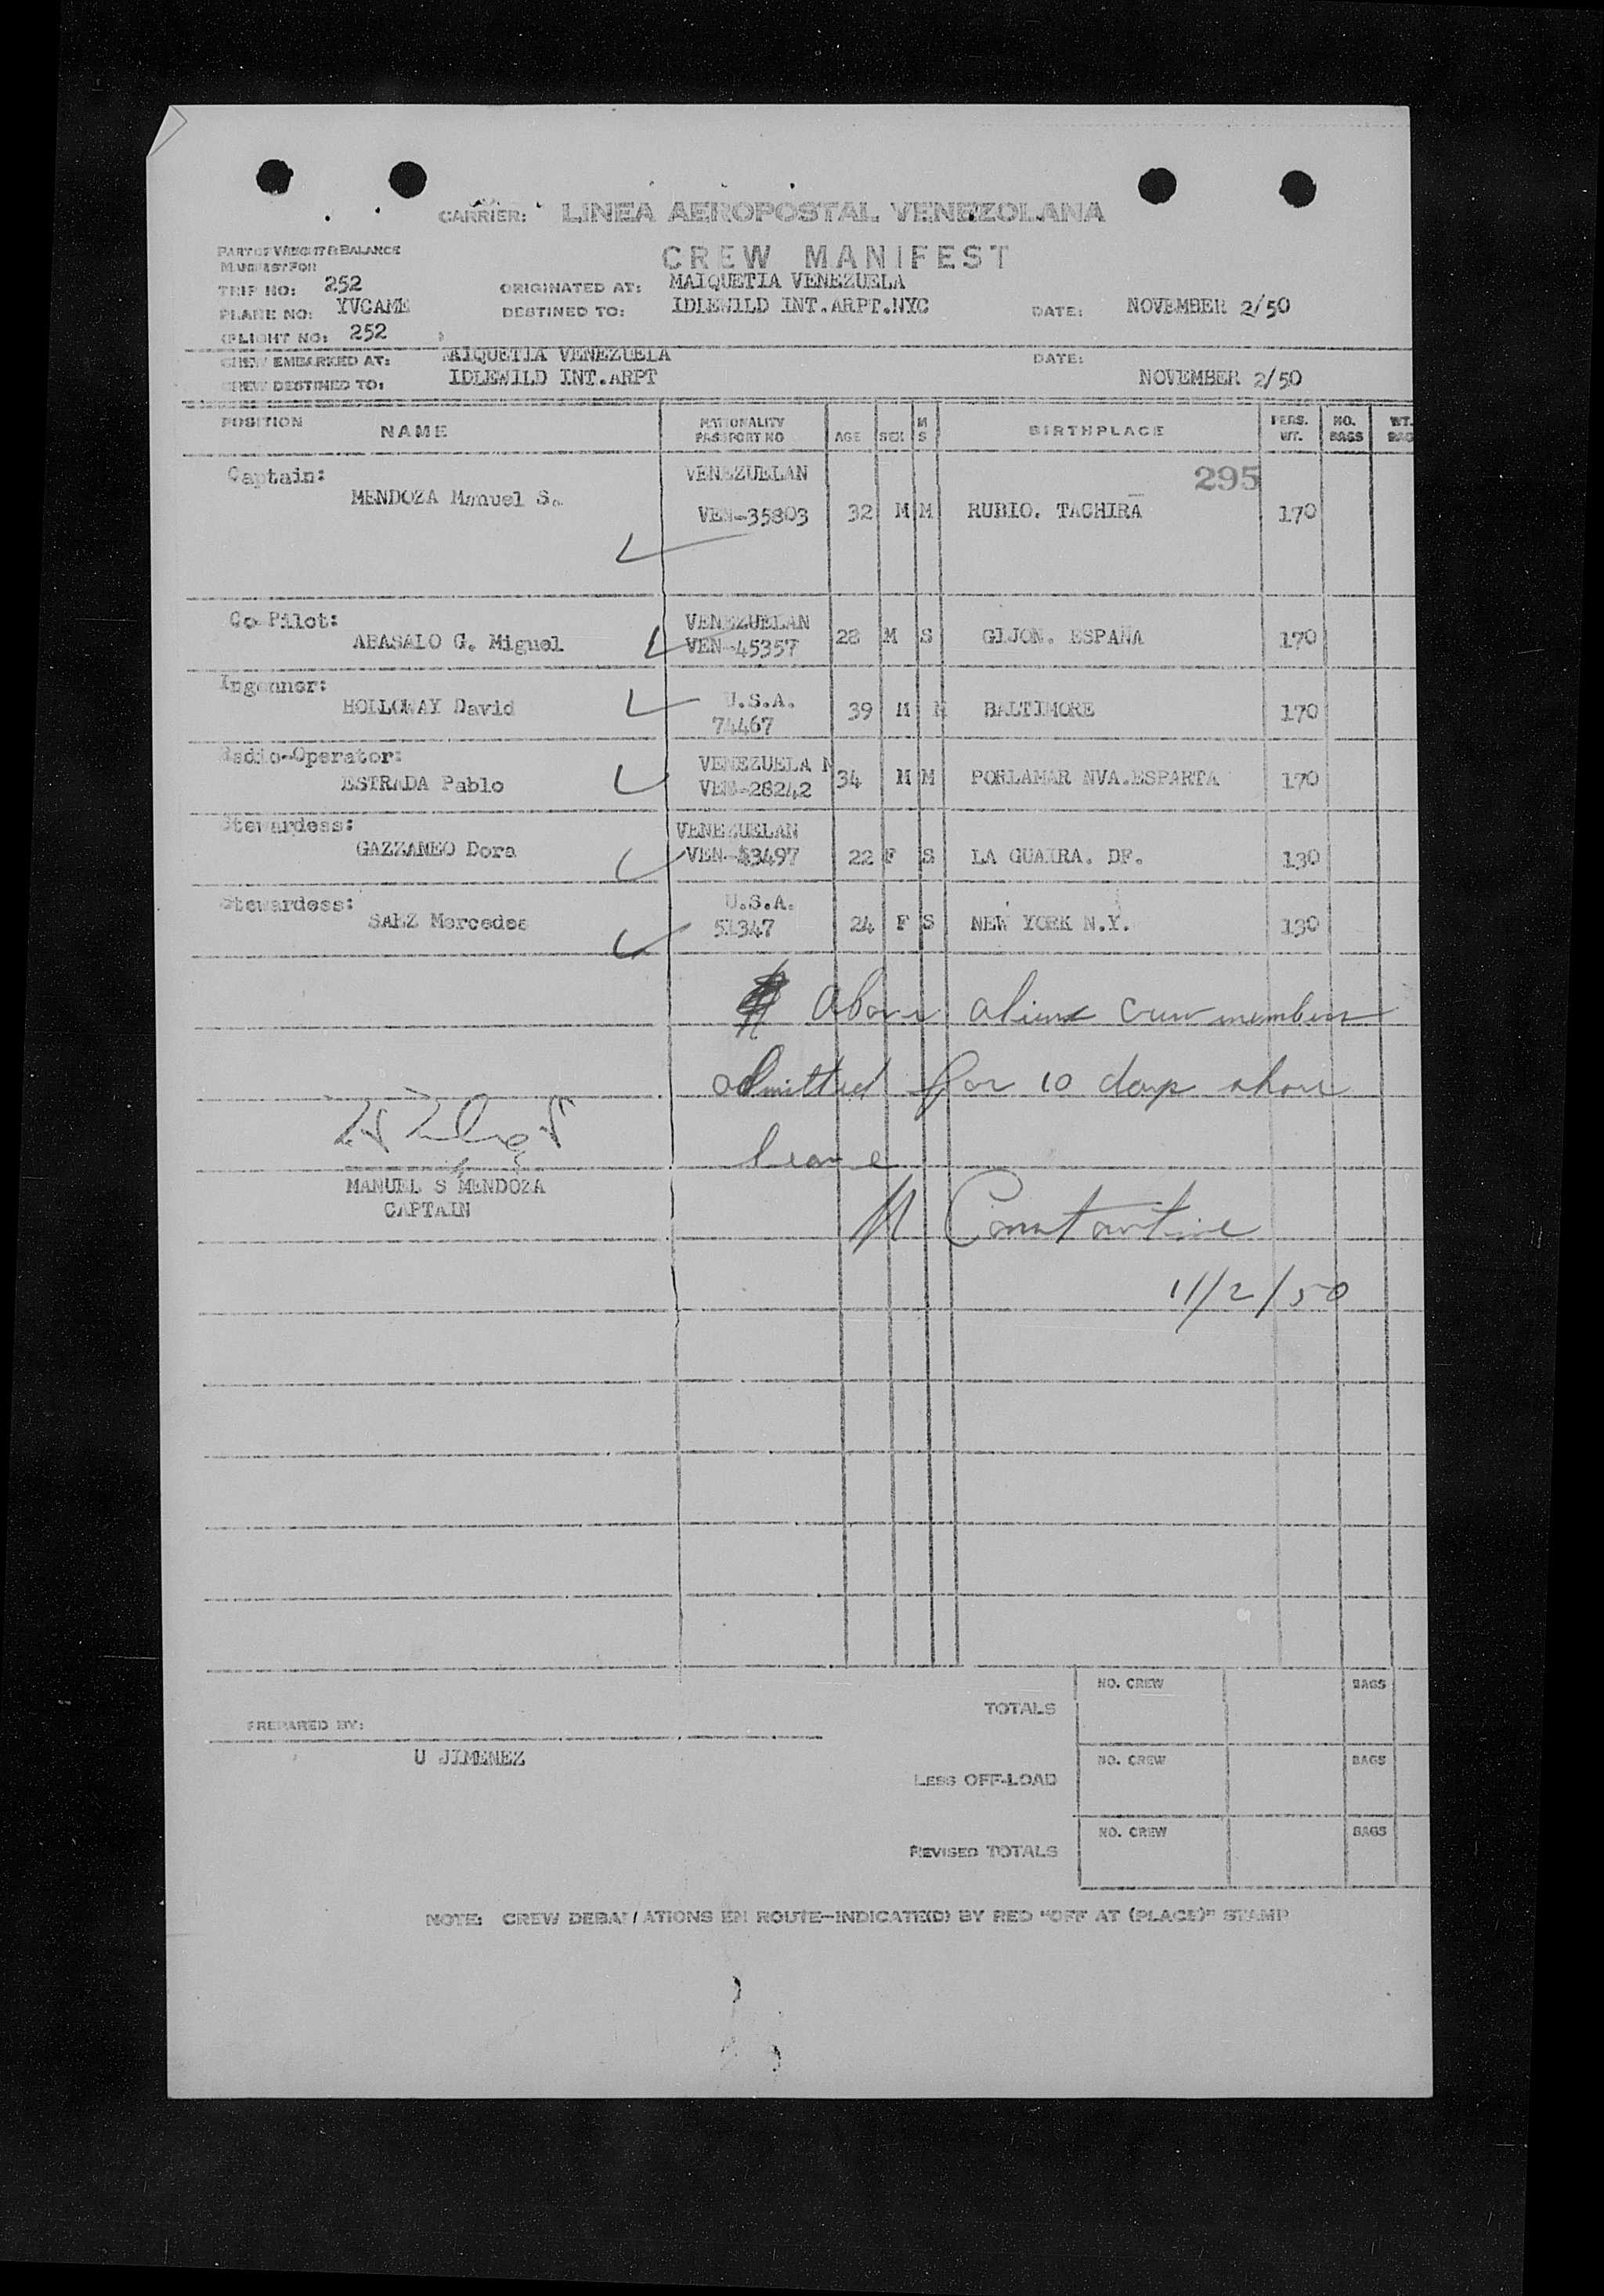 CARRIER: LINEA AEROPOSTAL VENEZOLANA
PART OF WEIGHT & BALANCE
MANIFEST FOR
CREW MANIFEST
TRIP NO: 252 ORIGINATED AT: MAIQUETIA VENEZUELA
PLANE NO: YVCAME DESTINED TO: IDLEWILD INT.ARPT.NYC DATE: NOVEMBER 2/50
(FLIGHT NO: 252 )
CREW EMBARKED AT: MAIQUETIA VENEZUELA DATE:
CREW DESTINED TO: IDLEWILD INT.ARPT NOVEMBER 2/50
POSITION NAME NATIONALITY PASSPORT NO AGE SEX M S BIRTHPLACE PERS. WT. NO. BAGS WT. BAG
Captain: VENEZUELAN 295
MENDOZA Manuel S. VEN-35803 32 M M RUBIO. TACHIRA 170
Co Pilot: VENEZUELAN
ABASALO G. Miguel VEN-45357 28 M S GIJON. ESPAÑA 170
Ingenner: U.S.A.
HOLLOWAY David 74467 39 M M BALTIMORE 170
Radio-Operator: VENEZUELA N
ESTRADA Pablo VEN-28242 34 M M PORLAMAR NVA.ESPARTA 170
Stewardess: VENEZUELAN
GAZZANEO Dora VEN-43497 22 F S LA GUAIRA. DF. 130
Stewardess: U.S.A.
SAEZ Mercedes 51347 24 F S NEW YORK N.Y. 130
Above aliens crewmembers
admitted for 10 days shore
leave
MANUEL S MENDOZA
CAPTAIN
M Constantine
11/2/50
NO. CREW BAGS
TOTALS
PREPARED BY:
U JIMENEZ
NO. CREW BAGS
LESS OFF-LOAD
NO. CREW BAGS
REVISED TOTALS
NOTE: CREW DEBARKATIONS EN ROUTE-INDICATE(D) BY RED "OFF AT (PLACE)" STAMP